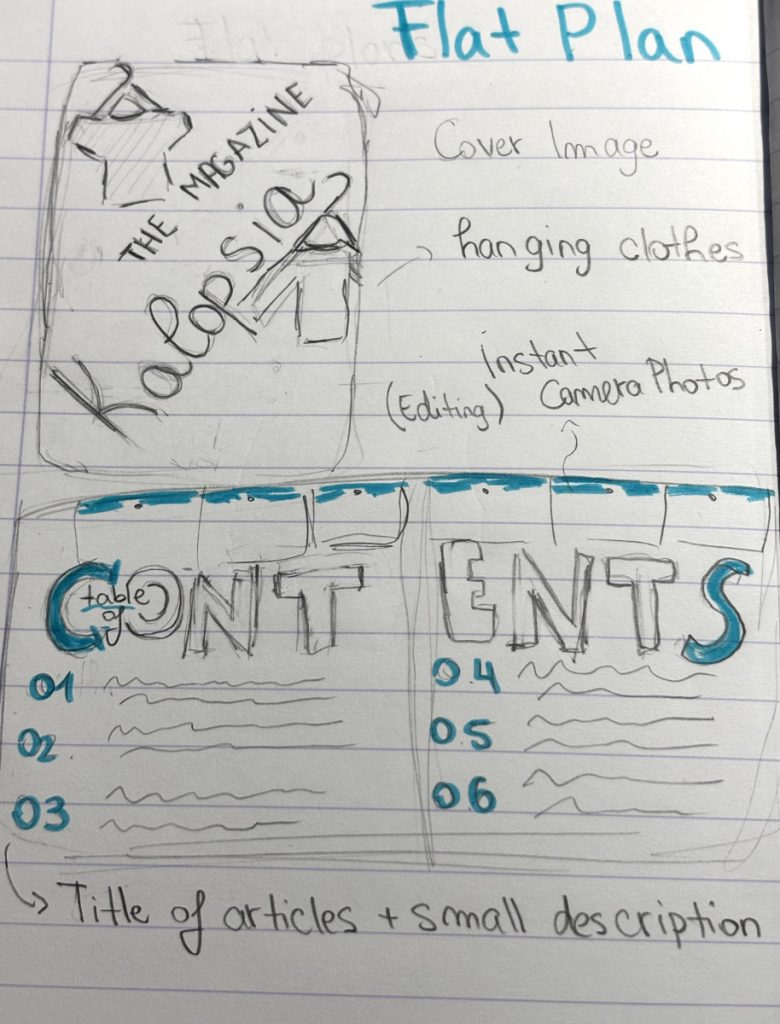 Flat Plan
THE MAGAZINE
Kalopsia
Cover Image
hanging clothes
instant
(Editing) Camera Photos
CONTENTS
table
of
01
02.
03
04
05
06
Title of articles + small description